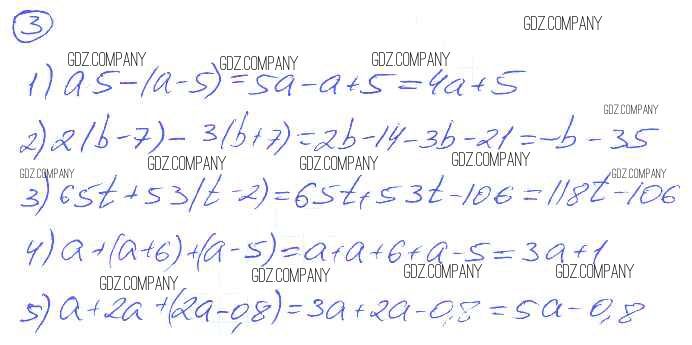 3
GDZ.COMPANY
GDZ.COMPANY GDZ.COMPANY GDZ.COMPANY
1) a5-(a-5)=5a-a+5=4a+5
GDZ.COMPANY
2) 2(b-7)-3(b+7)=2b-14-3b-21=-b-35
GDZ.COMPANY GDZ.COMPANY GDZ.COMPANY GDZ.COMPANY GDZ.COMPANY
3) 65t+53(t-2)=65t+53t-106=118t-106
4) a+(a+6)+(a-5)=a+a+6+a-5=3a+1
GDZ.COMPANY GDZ.COMPANY GDZ.COMPANY GDZ.COMPANY
5) a+2a+(2a-0,8)=3a+2a-0,8=5a-0,8